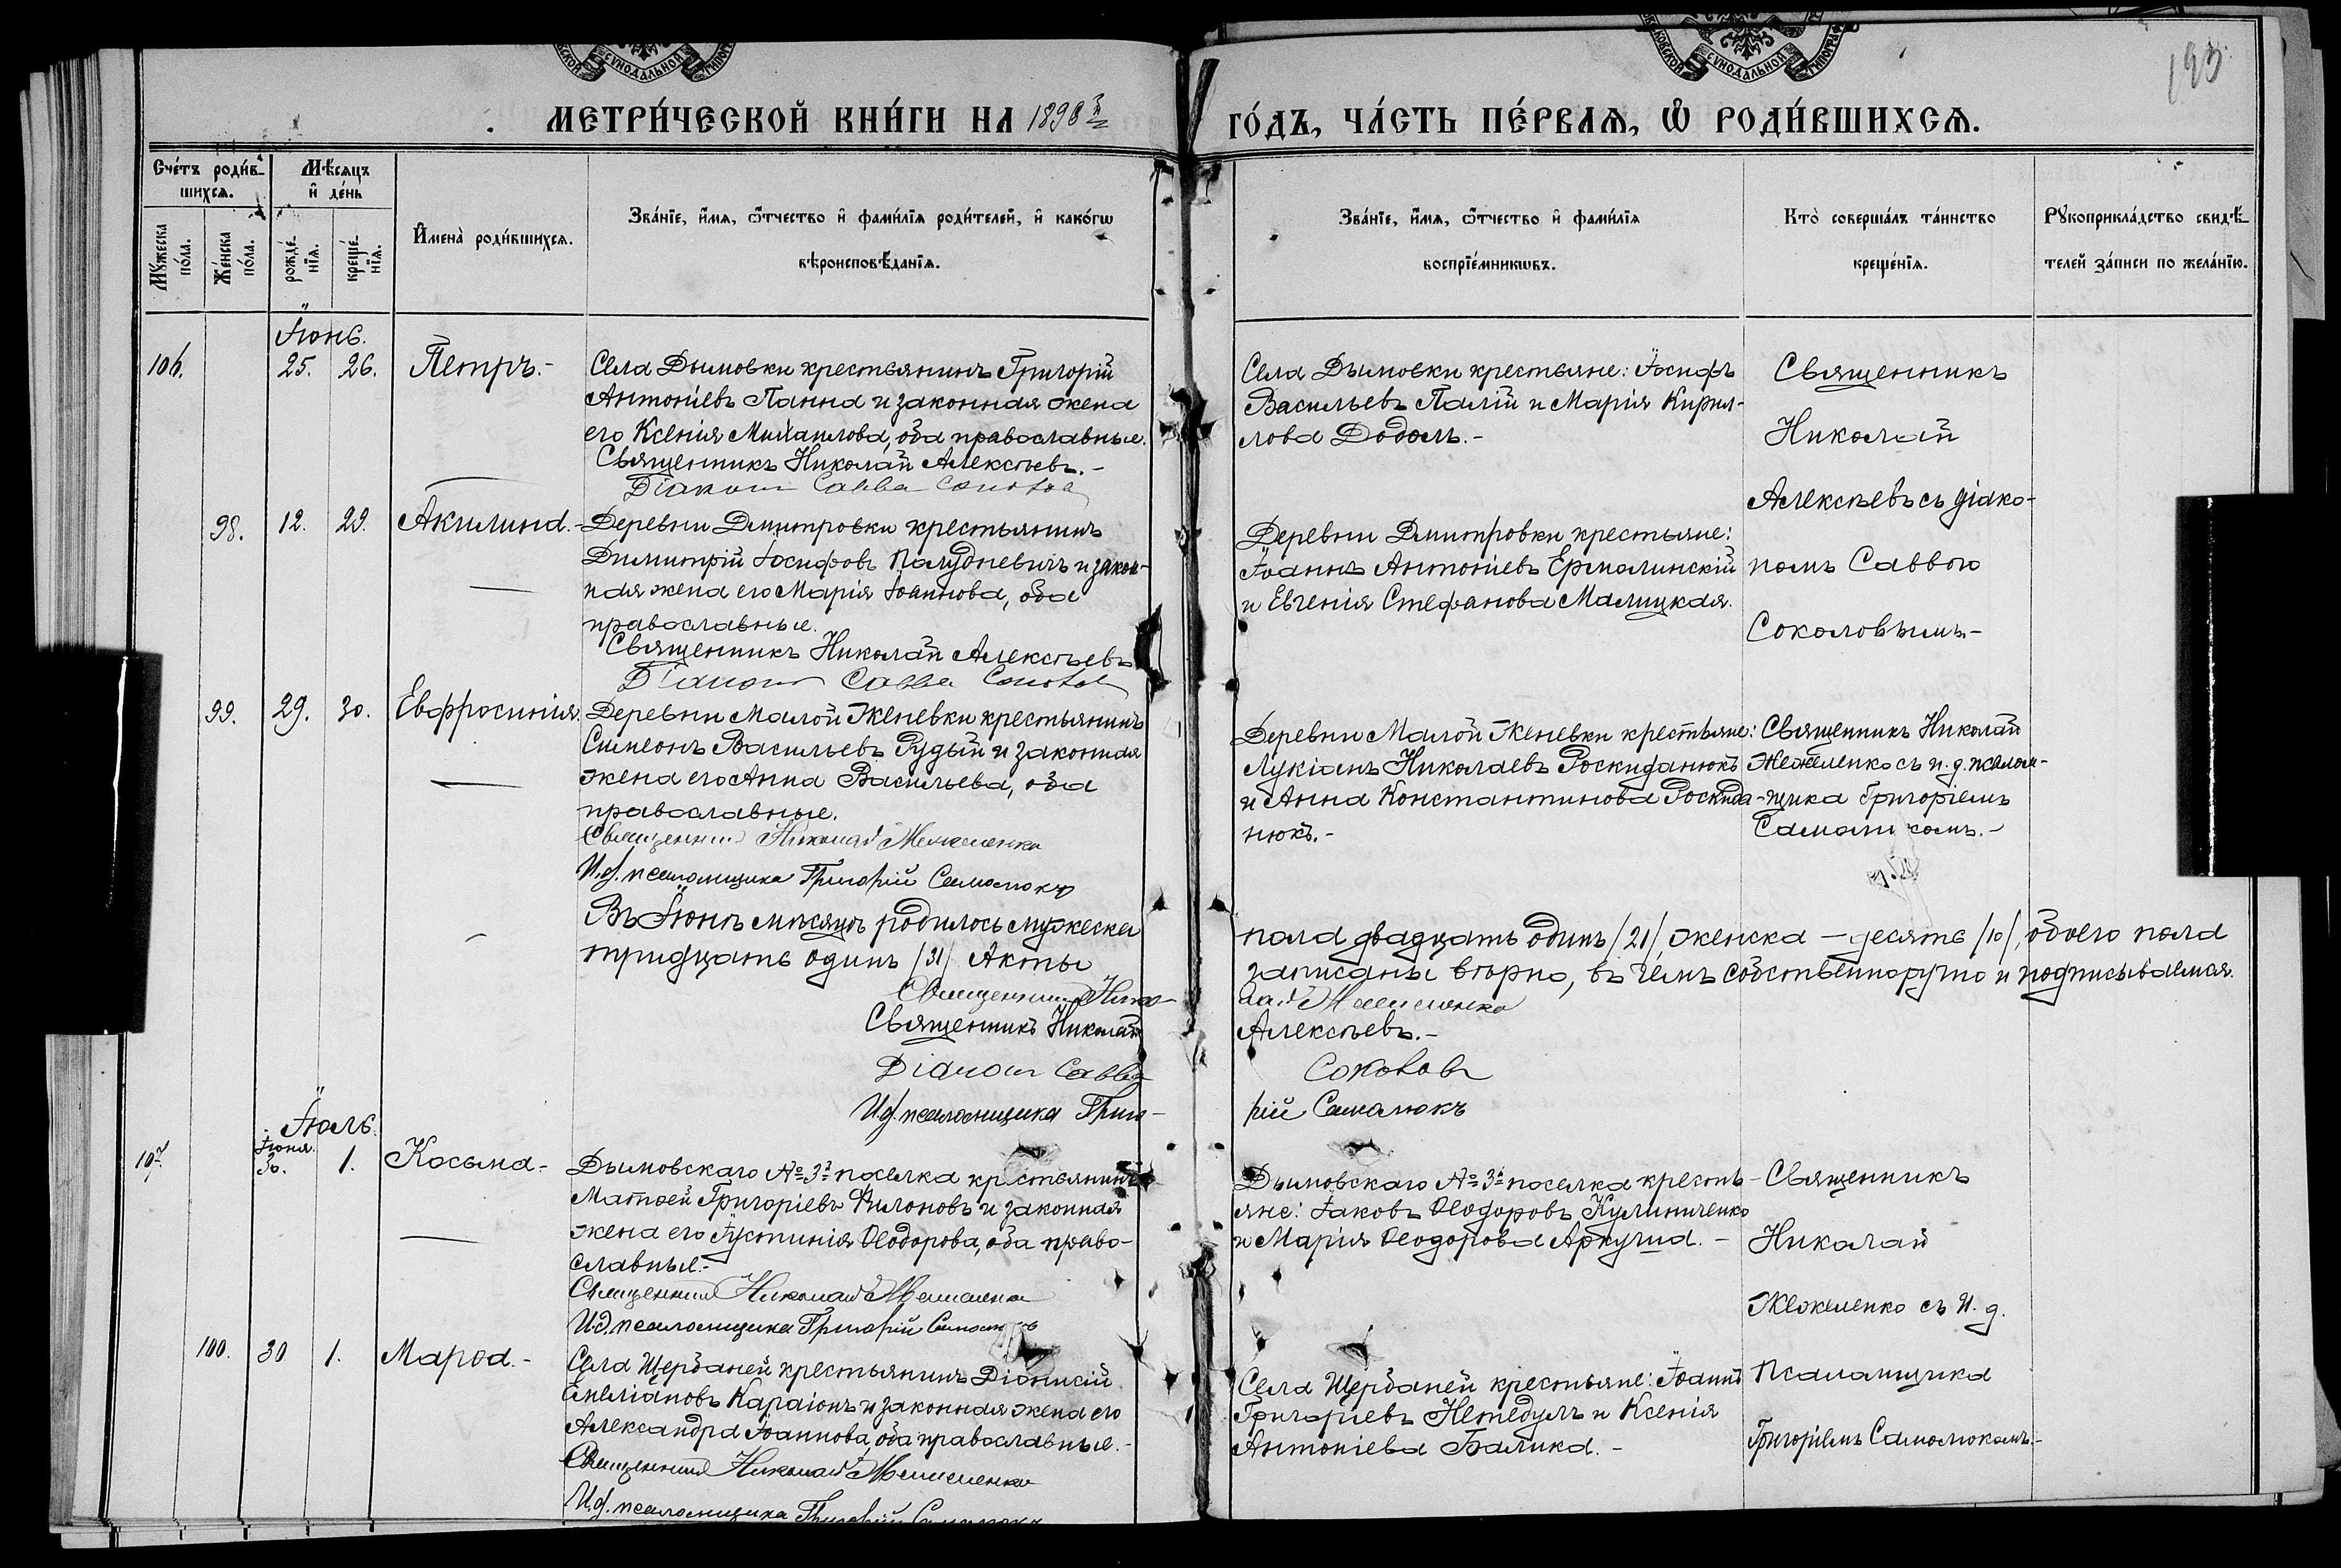 193
МЕТРИ́ЧЕСКОЙ КНИ́ГИ НА 1898й
ГО́ДЪ, ЧА́СТЬ ПЕ́РВАѦ, Ѡ РОДИ́ВШИХСѦ.
Сче́тъ роди́в-
шихсѧ.
Мѣ́сяцъ
и де́нь
Му́жеска
по́ла.
Же́нска
по́ла.
рожде́-
нїѧ.
креще́-
нїѧ.
И҆мена̀ роди́вшихсѧ.
Зва́нїе, и҆́мѧ, ѻ҆́тчество и҆ фами́лїѧ роди́телей, и҆ како́гѡ
вѣроисповѣ́данїѧ.
Зва́нїе, и҆́мѧ, ѻ҆́тчество и҆ фами́лїѧ
воспрїе́мникѡвъ.
Кто̀ соверша́лъ та́инство
креще́нїѧ.
Рꙋкоприкла́дство свидѣ́-
телей за́писи по жела́нїю.
Іюнь.
106. 25. 26. Петръ.-
Села Дымовки крестьянинъ Григорій
Антоніевъ Панна и законная жена
его Ксенія Михаилова, оба православные.
Священникъ Николай Алексѣевъ.-
Діаконъ Савва Соколовъ
Села Дымовки крестьяне: Іосифъ
Васильевъ Палій и Марія Кирил-
лова Додолъ.-
Священникъ
Николай
Алексѣевъ съ діако-
номъ Саввою
Соколовымъ.-
98. 12. 29. Акилина.-
Деревни Дмитровки крестьянинъ
Димитрій Іосифовъ Палудневичъ и закон-
ная жена его Марія Іоаннова, оба
православные.
Священникъ Николай Алексѣевъ
Діаконъ Савва Соколовъ
Деревни Дмитровки крестьяне:
Іоаннъ Антоніевъ Ермолинскій
и Евгенія Стефанова Малицкая.
99. 29. 30. Евфросинія.
Деревни Малой Женевки крестьянинъ
Симеонъ Васильевъ Рудый и законная
жена его Анна Васильева, оба
православные.
Священникъ Николай Межеленко
И.д. псаломщика Григорій Самолюкъ
Деревни Малой Женевки крестьяне:
Лукіанъ Николаевъ Роскиданюкъ
и Анна Константинова Роскида-
нюкъ.-
Священникъ Николай
съ и.д. псалом-
щика Григоріемъ
Въ Іюнѣ мѣсяцѣ родилось мужеска
пола двадцать одинъ /21/ женска - десять /10/, обоего пола
тридцать одинъ /31/ Акты
записаны вѣрно, въ чемъ собственноручно и подписываемся.
Священникъ Нико-
лай Межеленко
Священникъ Николай
Алексѣевъ.-
Діаконъ Савва
Соколовъ
И.д. псаломщика Григо-
рій Самолюкъ
Іюль.
107. Іюня 30. 1. Косьма-
Дымовскаго № 3й поселка крестьянинъ
Матѳей Григоріевъ Филоновъ и законная
жена его Іустинія Ѳеодорова, оба право-
славные.-
Священникъ Николай Межеленко
И.д. псаломщика Григорій Самолюкъ
Дымовскаго № 3й поселка кресть-
яне: Іаковъ Ѳеодоровъ Кулиниченко
и Марія Ѳеодорова -
Священникъ
Николай
Межеленко съ и.д.
псаломщика
Григоріемъ Самолюкомъ.-
100. 30 1. Марѳа.-
Села Щербаней крестьянинъ Діонисій
Емеліановъ Караіонъ и законная жена его
Александра Іоаннова, оба православные.-
Священникъ Николай Межеленко
И.д. псаломщика Григорій Самолюкъ
Села Щербаней крестьяне: Іоаннъ
Григоріевъ Нетедулъ и Ксенія
Антоніева Балика.-